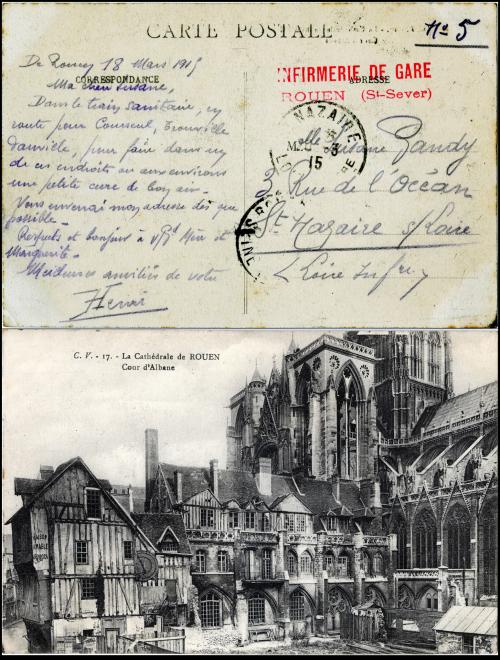 CARTE POSTALE
No 5
CORRESPONDANCE
ADRESSE
INFIRMERIE DE GARE
ROUEN (St-Sever)
De Rouen 18 Mars 1915
Ma chère Susane,
Dans le train sanitaire, en
route pour Courseul, Trouville
Dauville, pour faire dans un
de ces endroits ou aux environs
une petite cure de bon air.
Vous enverrai mon adresse dès que
possible.
Respects et bonjour à Mère et
Marguerite.
Meilleures amitiés de votre
Henri
NAZAIRE
15
Melle Susane Gandy
2 Rue de l'Océan
St Nazaire s/Loire
Loire Infre
C. V. - 17. - La Cathédrale de ROUEN
Cour d'Albane
C. V. - 17 - La Cathédrale de ROUEN
Cour d'Albane